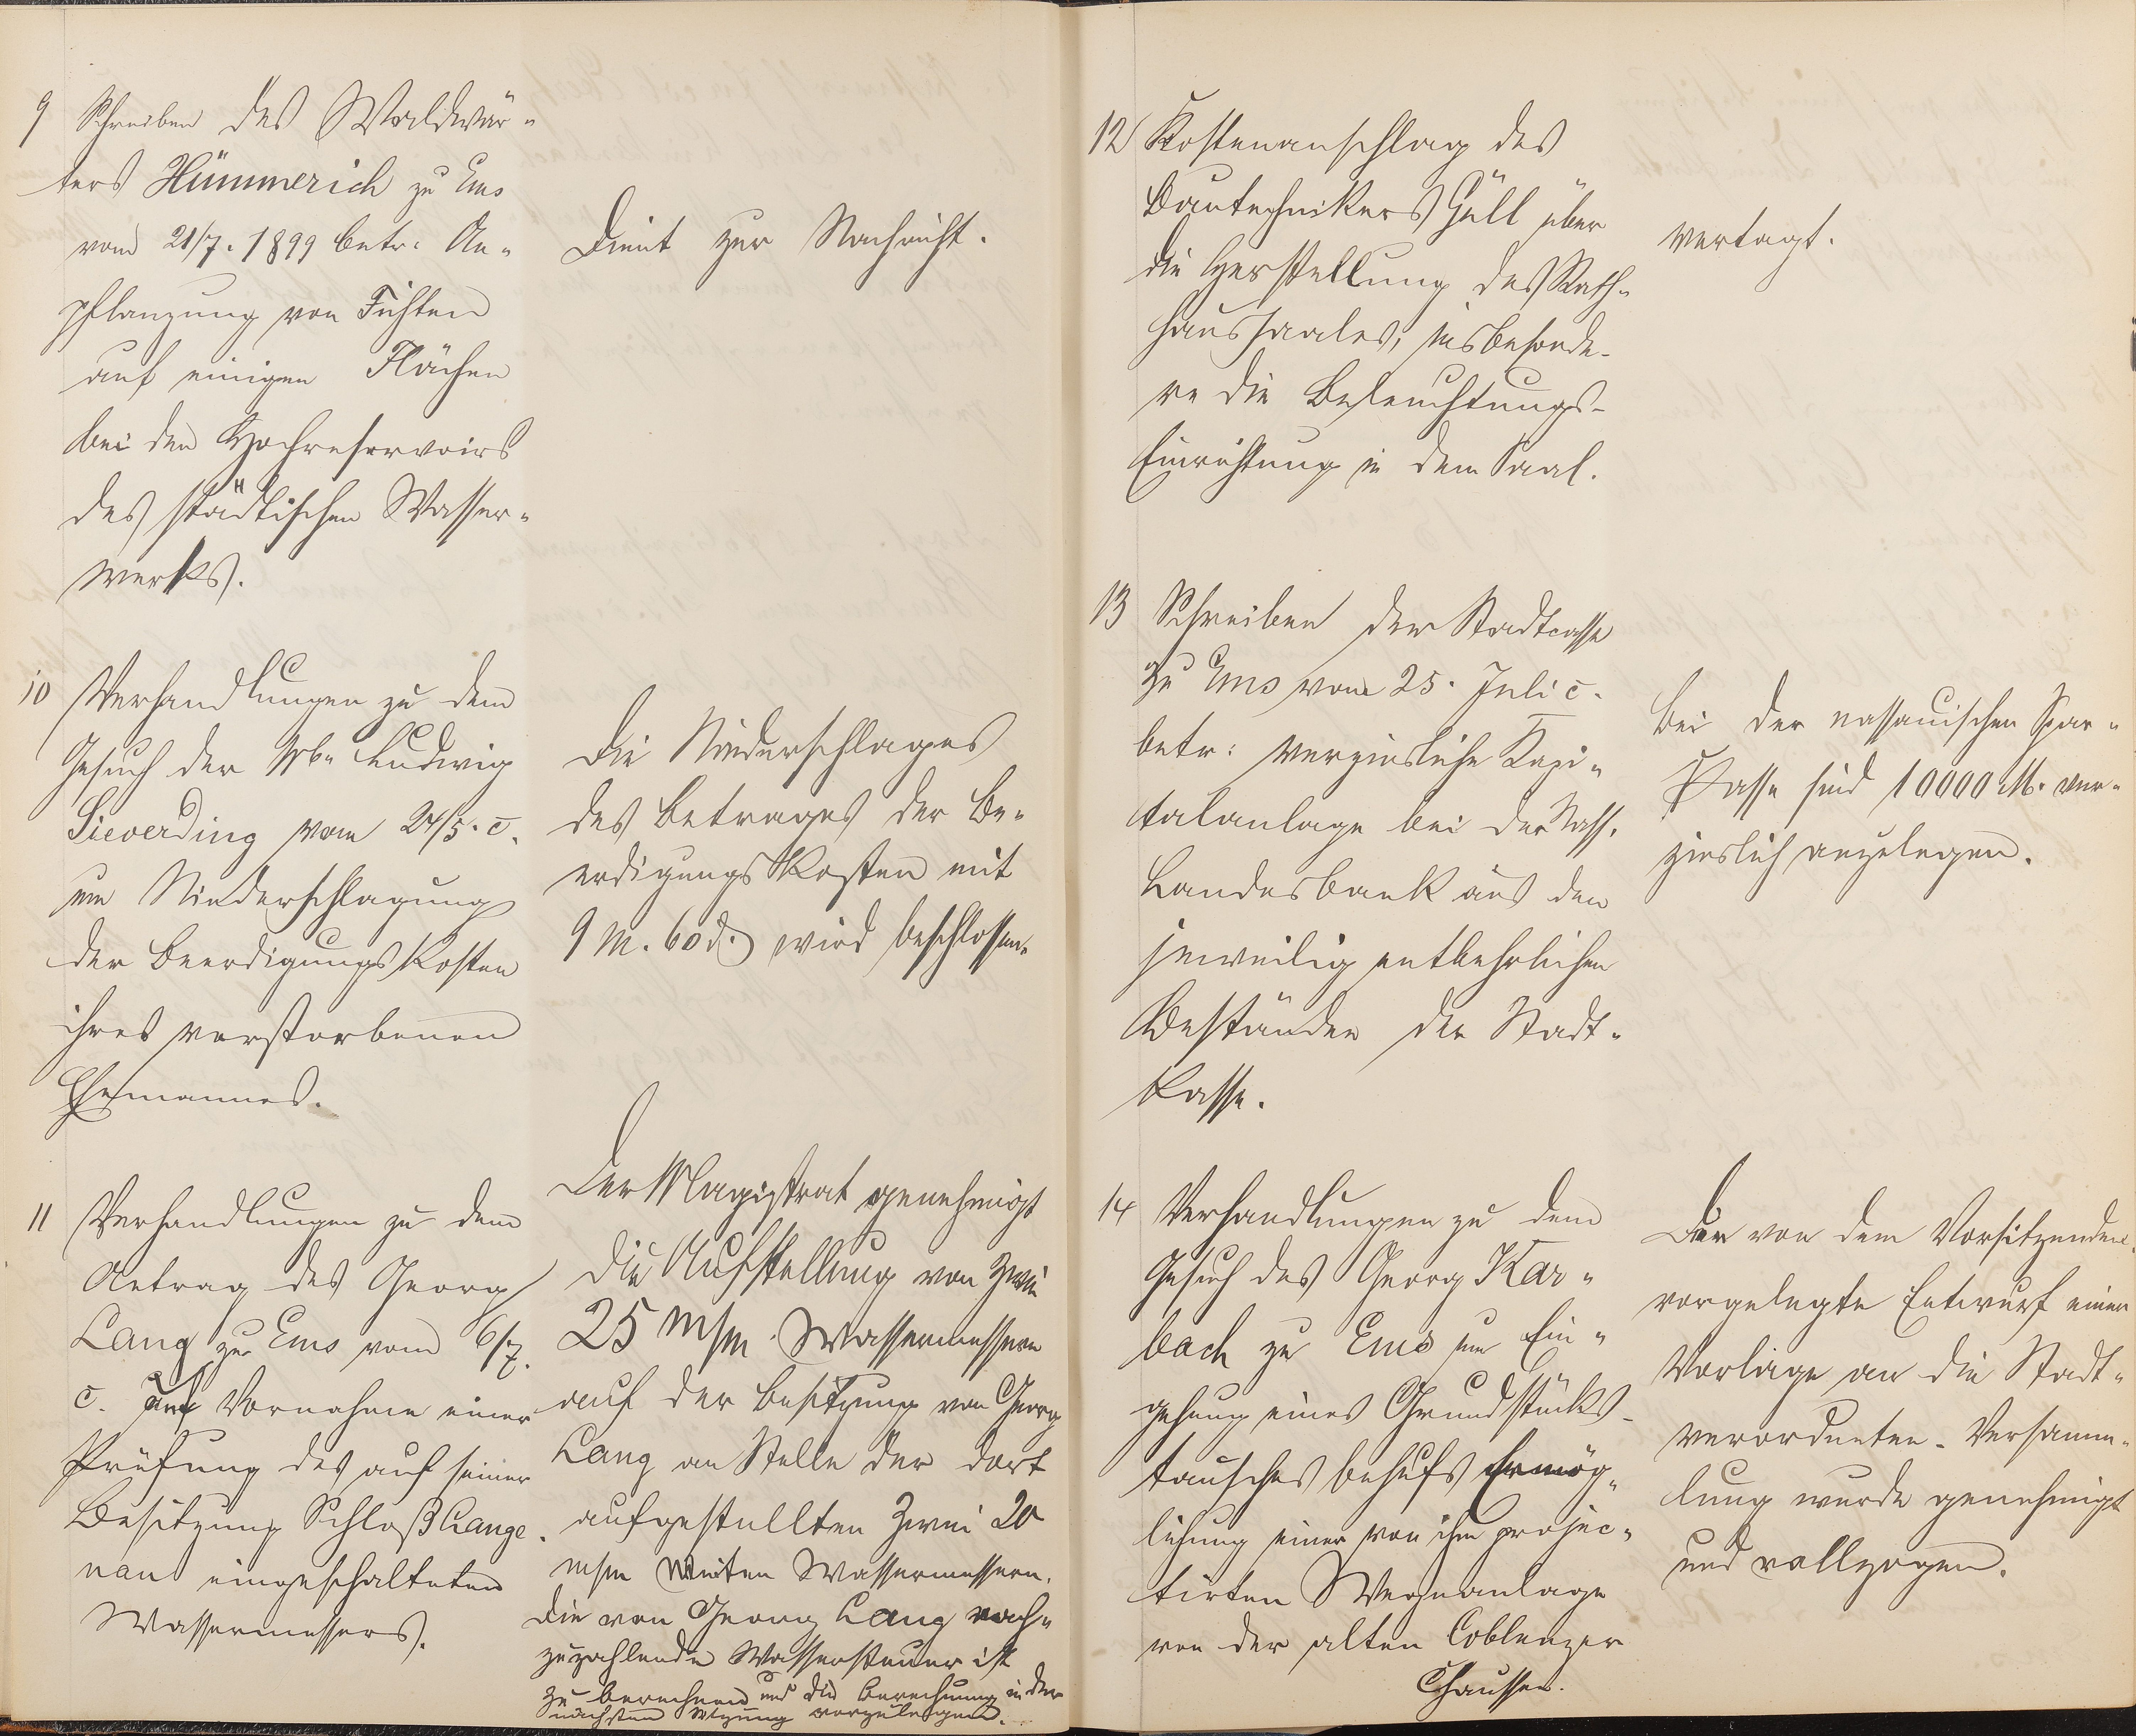 9 Schreiben des Waldwär-
ters Hümmerich zu Ems
vom 21/7. 1899 betr. An-
pflanzung von Fichten
auf einigen Flächen
bei den Hochreservoirs
des städtischen Wasser-
werks.
Dient zur Nachricht.
10 Verhandlungen zu dem
Gesuch der Wb. Ludwig
Sieverding vom 24/5. c.
um Niederschlagung
der Beerdigungskosten
ihres verstorbenen
Ehemannes.
Die Niederschlages
des Betrages der Be-
erdigungskosten mit
9 M. 60 d. wird beschlossen.
11 Verhandlungen zu dem
Antrag des Georg
Lang zu Ems vom 6/7.
c. auf Vornahme einer
Prüfung des auf seiner
Besitzung Schloß Lange-
nau eingeschalteten
Wassermessers.
Der Magistrat genehmigt
die Aufstellung von zwei
25 m/m Wassermessern
auf der Besitzung von Georg
Lang an Stelle der dort
aufgestellten zwei 20
m/m weiten Wassermessern.
Die von Georg Lang nach-
zuzahlende Wassersteuer ist
zu berechnen und die Berechnung in der
nächsten Sitzung vorzulegen.
12 Kostenanschlag des
Bautechnikers Güll über
die Herstellung des Rath-
haussaales, insbesonde-
re die Beleuchtungs-
Einrichtung in dem Saal.
vertagt.
13 Schreiben der Stadtcasse
zu Ems vom 25. Juli c.
betr: verzinsliche Kapi-
talanlage bei der Nass.
Landesbank aus den
jeweilig entbehrlichen
Beständen der Stadt-
kasse.
Bei der nassauischen Spar-
kasse sind 10000 M. ver-
zinslich anzulegen.
14 Verhandlungen zu dem
Gesuch des Georg Kar-
bach zu Ems um Ein-
gehung eines Grundstücks-
tausches behufs Ermög-
lichung einer von ihm projec-
tirten Wegeanlage
von der alten Coblenzer
Chaussee.
Der von dem Vorsitzenden
vorgelegte Entwurf einer
Vorlage an die Stadt-
verordneten-Versamm-
lung wurde genehmigt
und vollzogen.